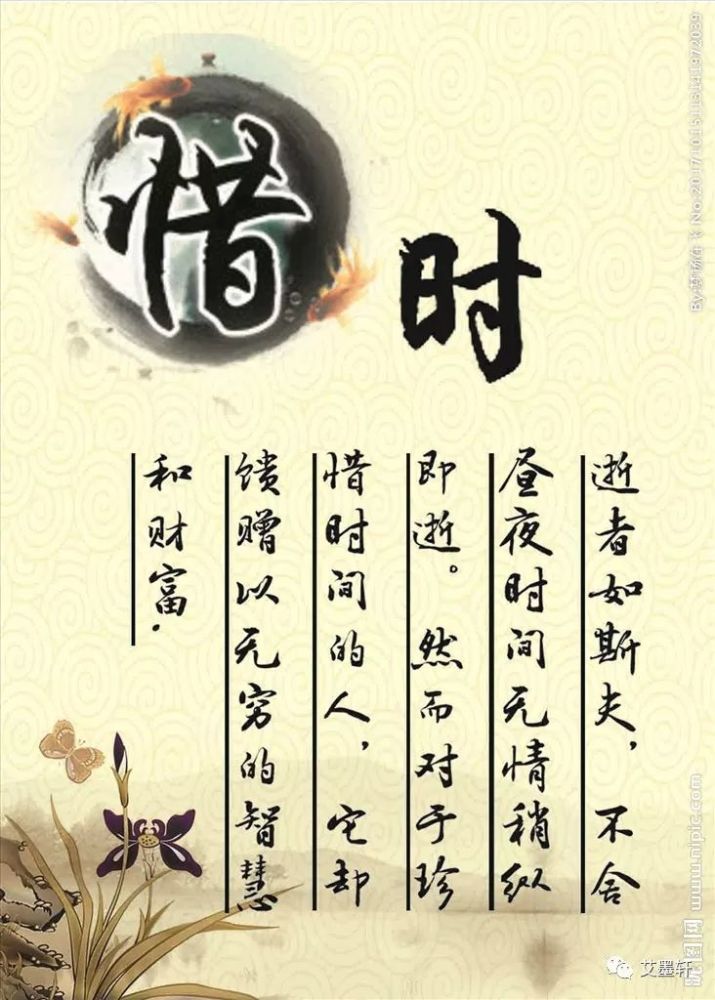 惜时
逝者如斯夫，不舍
昼夜时间无情稍纵
即逝。然而对于珍
惜时间的人，它却
馈赠以无穷的智慧
和财富.
www.nipic.com
艾墨轩